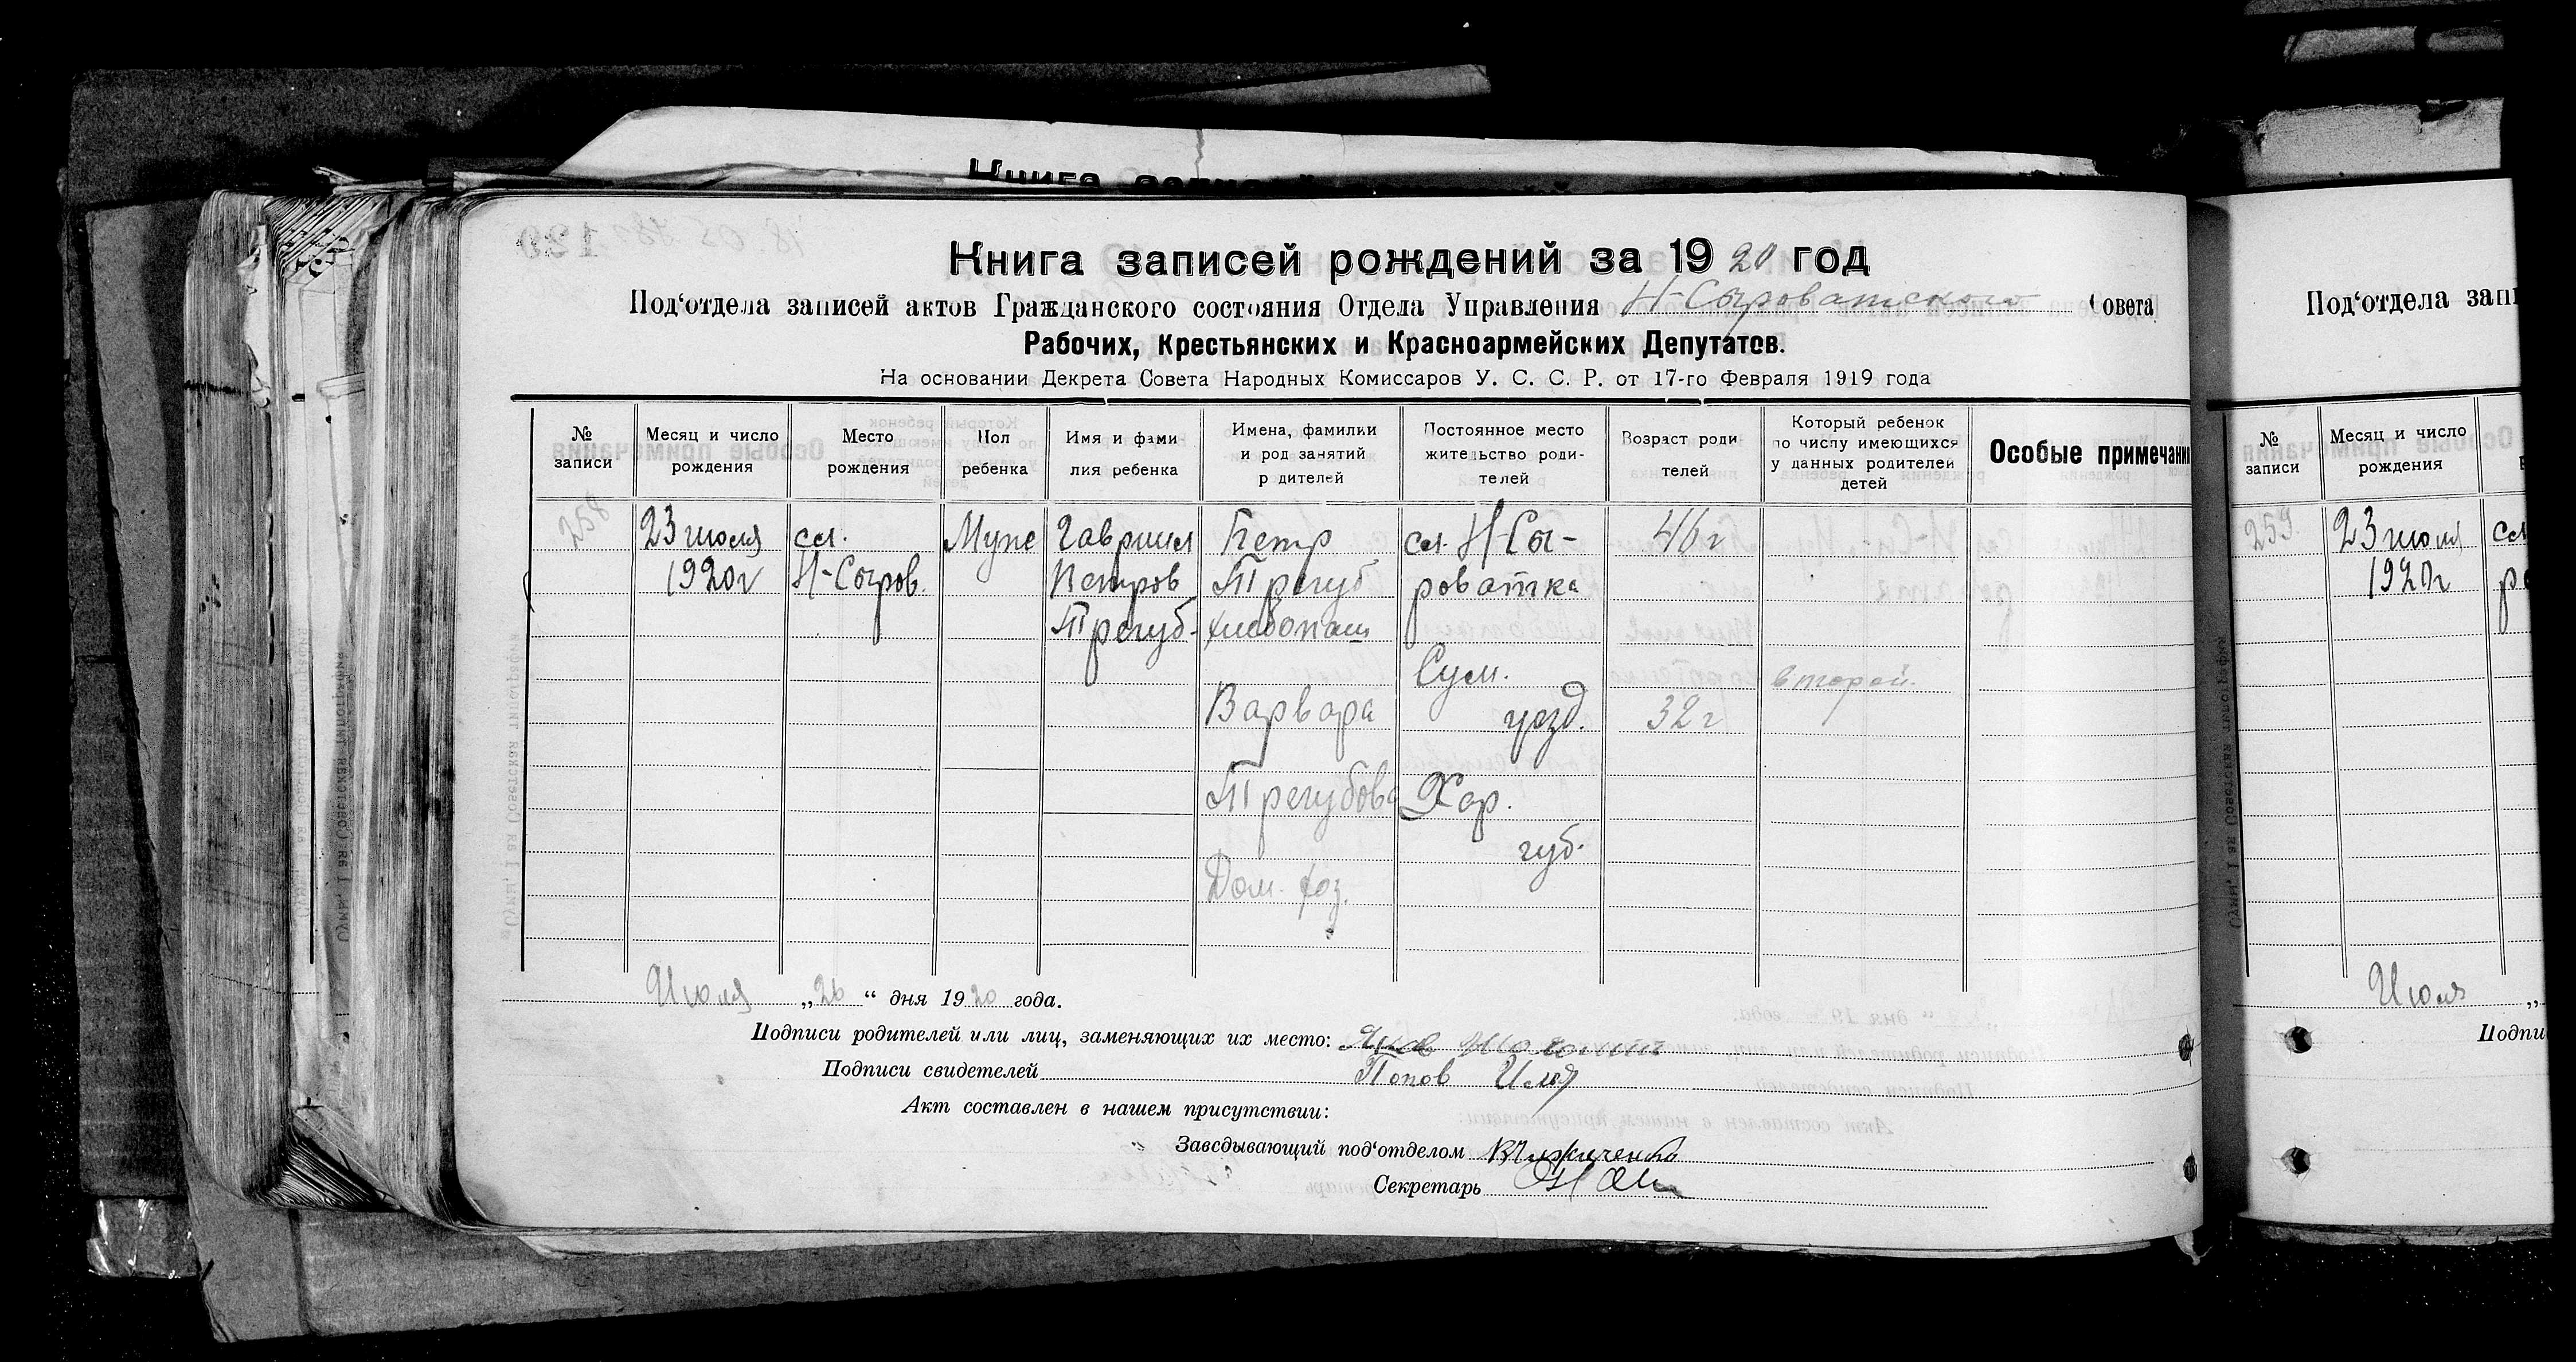 Книга записей рождений за 1920 год
Под‘отдела записей актов Гражданского состояния Отдела Управления Н-Сыроватского Совета
Рабочих, Крестьянских и Красноармейских Депутатов.
На основании Декрета Совета Народных Комиссаров У. С. С. Р. от 17-го Февраля 1919 года
№ записи
Месяц и число рождения
Место рождения
Пол ребенка
Имя и фами лия ребенка
Имена, фамилии и род занятий р дителей
Постоянное место жительство роди- телей
Возраст роди- телей
Который ребенок по числу имеющихся у данных родителей детей
Особые примечани
258
23 июля
1920г
сл.
Н-Сыров.
Муже
Гавриил
Петров
Трегуб.
Петр
Трегуб
хлебопаш
Варвара
Трегубова
Дом. хоз.
сл. Н-Сы-
роватка
Сум.
уезд.
Хар.
губ.
46г
32г
второй.
Июля „26“ дня 1920 года.
Подписи родителей или лиц, заменяющих их место: Яков
Подписи свидетелей Попов Илья
Акт составлен в нашем присутствии:
Заведывающий под‘отделом
Секретарь
Под‘отдела зап
№ записи
Месяц и число рождения
259.
23 июля
1920г
сл
ро
Июля „
Подпи